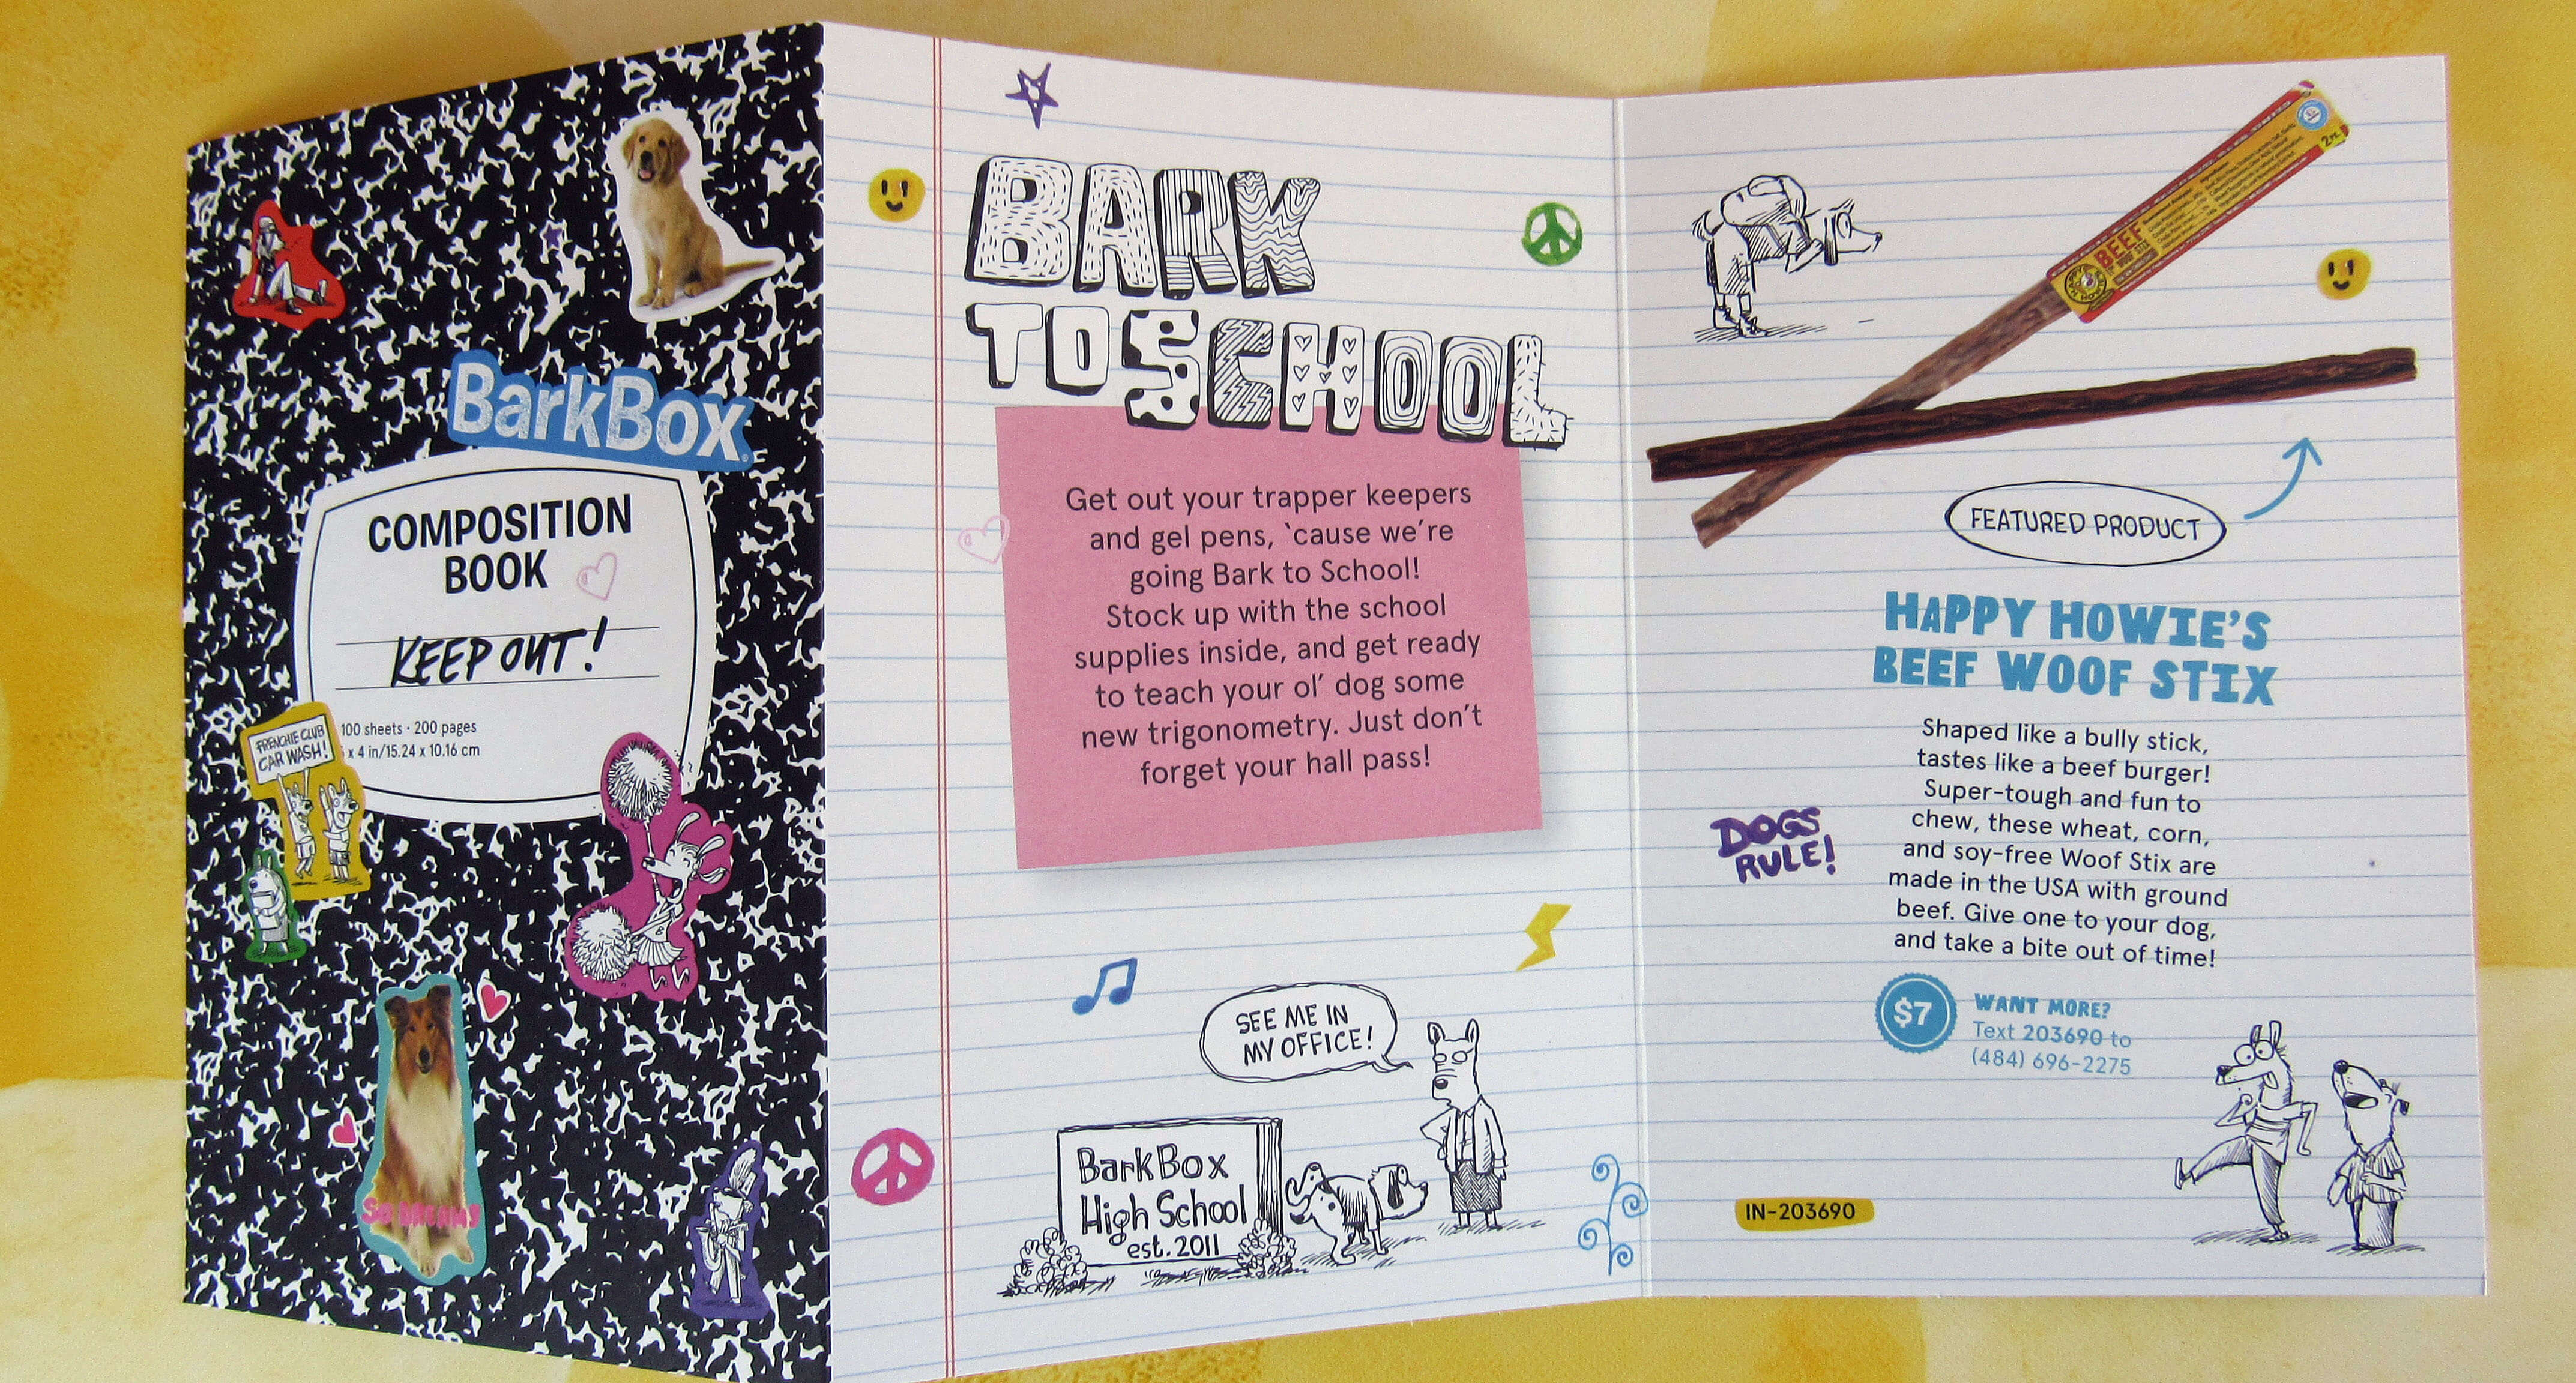 BarkBox
COMPOSITION
BOOK
KEEP OUT!
100 sheets · 200 pages
x 4 in/15.24 x 10.16 cm
FRENCHIE CLUB
CAR WASH!
B
BARK
TO SCHOOL
Get out your trapper keepers
and gel pens, ‘cause we’re
going Bark to School!
Stock up with the school
supplies inside, and get ready
to teach your ol’ dog some
new trigonometry. Just don’t
forget your hall pass!
SEE ME IN
MY OFFICE!
BarkBox
High School
est. 2011
HAPPY HOWIE'S
BEEF
WOOF STIX
2pk
FEATURED PRODUCT
HAPPY HOWIE’S
BEEF WOOF STIX
Shaped like a bully stick,
tastes like a beef burger!
Super-tough and fun to
chew, these wheat, corn,
and soy-free Woof Stix are
made in the USA with ground
beef. Give one to your dog,
and take a bite out of time!
DOGS
RULE!
$7
WANT MORE?
Text 203690 to
(484) 696-2275
IN-203690